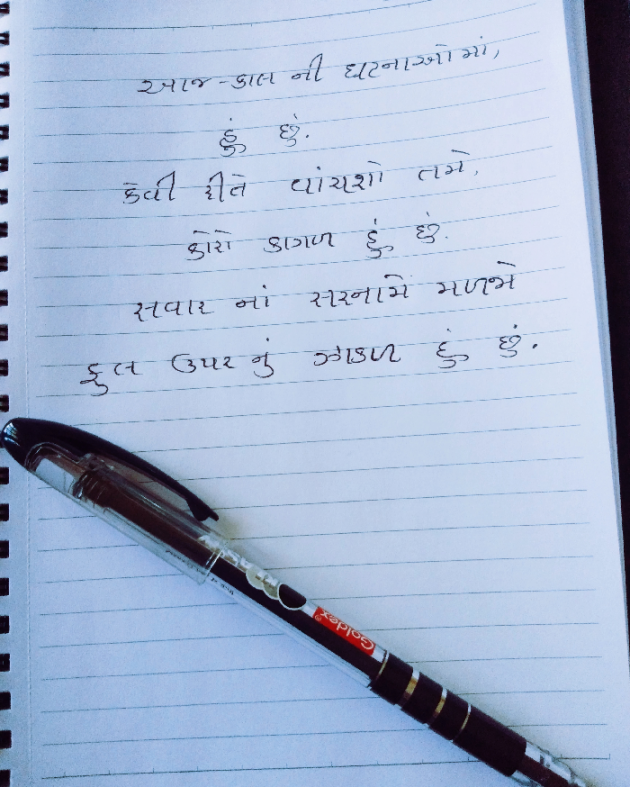 આજ-કાલ ની ઘટનાઓમાં,
હું છું.
કેવી રીતે વાંચશો તમે,
કોરો કાગળ હું છું.
સવાર નાં સરનામે મળજો
ફુલ ઉપર નું ઝાકળ હું છું.
Goldex